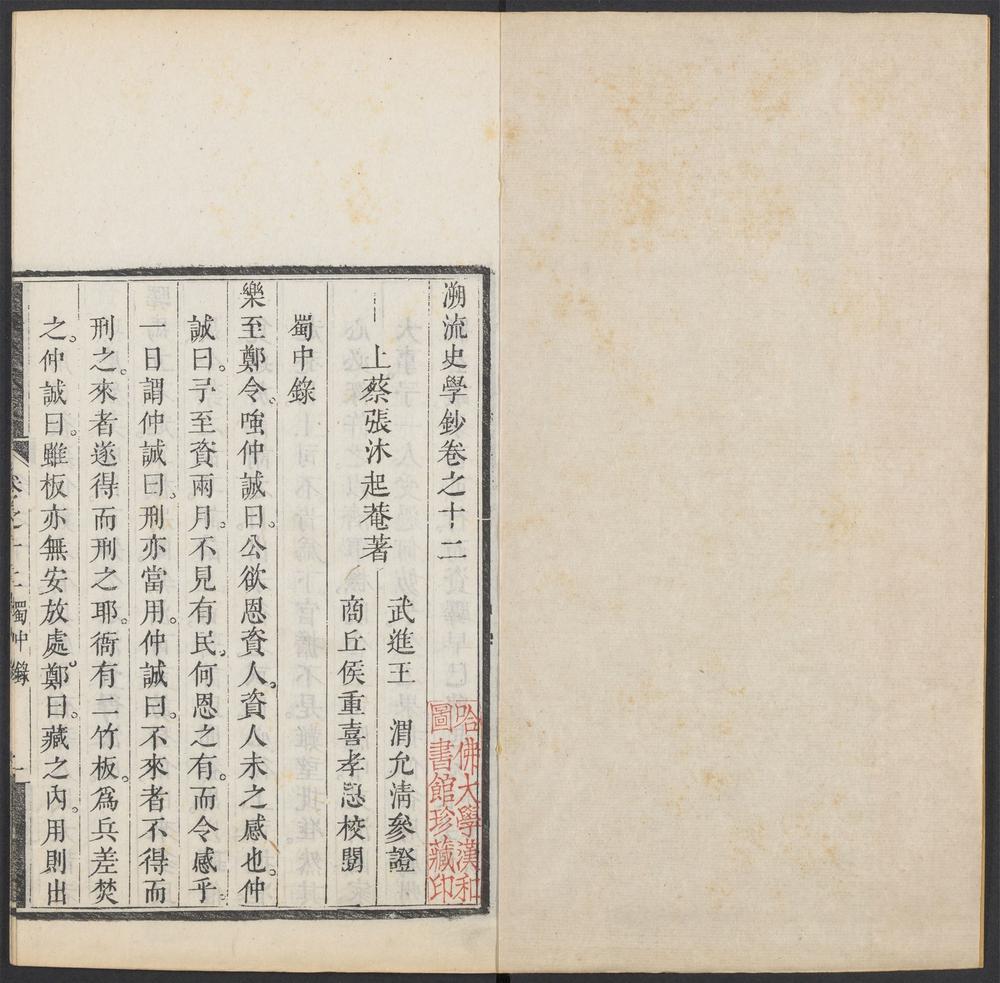 溯流史學鈔卷之十二
上蔡張沐起菴著
武進王　渭允淸參證
商丘侯重喜孝思校閱
蜀中錄
樂至鄭令。嗤仲誠曰。公欲恩資人。資人未之感也。仲
誠曰。予至資兩月。不見有民。何恩之有。而令感乎。
一日謂仲誠曰。刑亦當用。仲誠曰。不來者不得而
刑之。來者遂得而刑之耶。衙有二竹板。爲兵差焚
之。仲誠曰。雖板亦無安放處。鄭曰。藏之內。用則出
卷之十二　蜀中錄　一
哈佛大學漢和
圖書館珍藏印